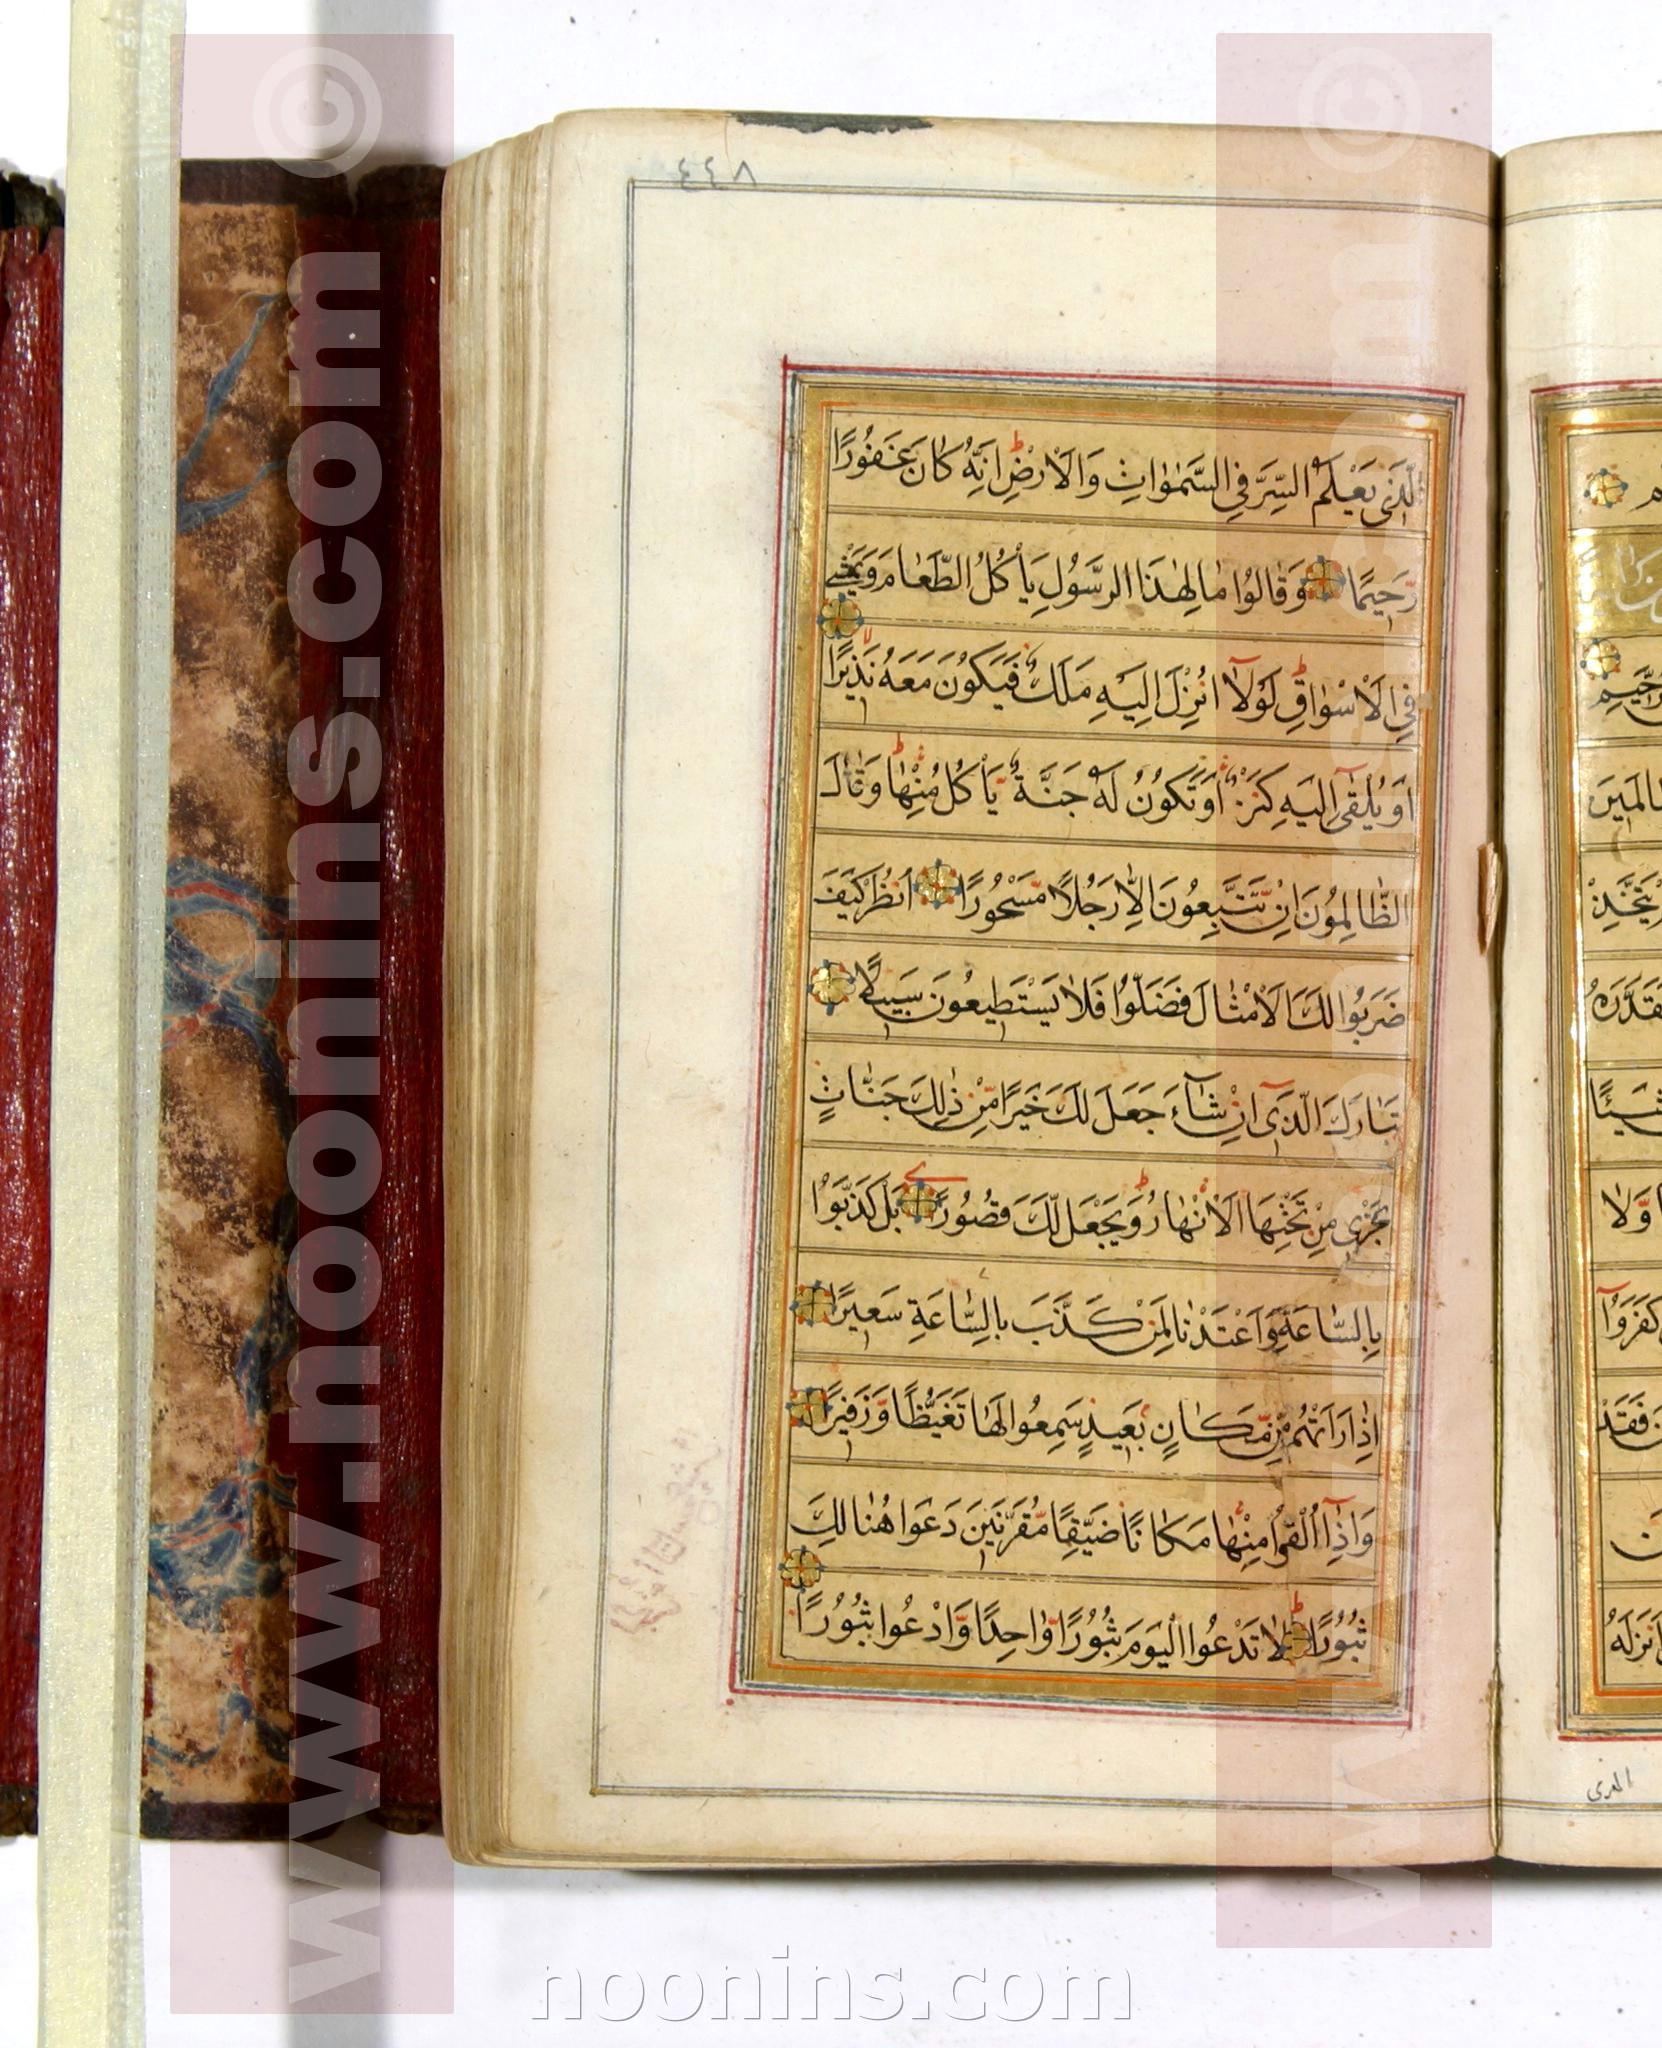 ٤٤٨
الَّذِی یَعْلَمُ السِّرَّ فِی السَّمٰوٰاتِ وَالْاَرْضِ اِنَّهُ کٰانَ غَفُورًا
رَحِیمًا وَقٰالُوا مٰالِ هٰذَا الرَّسُولِ یَأْکُلُ الطَّعٰامَ وَیَمْشِی
فِی الْاَسْوٰاقِ لَوْلٰا اُنْزِلَ اِلَیْهِ مَلَكٌ فَیَکُونَ مَعَهُ نَذِیرًا
اَوْ یُلْقٰی اِلَیْهِ کَنْزٌ اَوْ تَکُونُ لَهُ جَنَّةٌ یَأْکُلُ مِنْهٰا وَقٰالَ
الظّٰالِمُونَ اِنْ تَتَّبِعُونَ اِلّٰا رَجُلًا مَسْحُورًا اُنْظُرْ کَیْفَ
ضَرَبُوا لَكَ الْاَمْثٰالَ فَضَلُّوا فَلٰا یَسْتَطِیعُونَ سَبِیلًا
تَبٰارَكَ الَّذِی اِنْ شٰآءَ جَعَلَ لَكَ خَیْرًا مِنْ ذٰلِكَ جَنّٰاتٍ
تَجْرِی مِنْ تَحْتِهَا الْاَنْهٰارُ وَیَجْعَلْ لَكَ قُصُورًا بَلْ کَذَّبُوا
بِالسّٰاعَةِ وَاَعْتَدْنٰا لِمَنْ کَذَّبَ بِالسّٰاعَةِ سَعِیرًا
اِذٰا رَاَتْهُمْ مِنْ مَکٰانٍ بَعِیدٍ سَمِعُوا لَهٰا تَغَیُّظًا وَزَفِیرًا
وَاِذٰا اُلْقُوا مِنْهٰا مَکٰانًا ضَیِّقًا مُقَرَّنِینَ دَعَوْا هُنٰالِكَ
ثُبُورًا لٰا تَدْعُوا الْیَوْمَ ثُبُورًا وٰاحِدًا وَادْعُوا ثُبُورًا
www.noonins.com ©
noonins.com